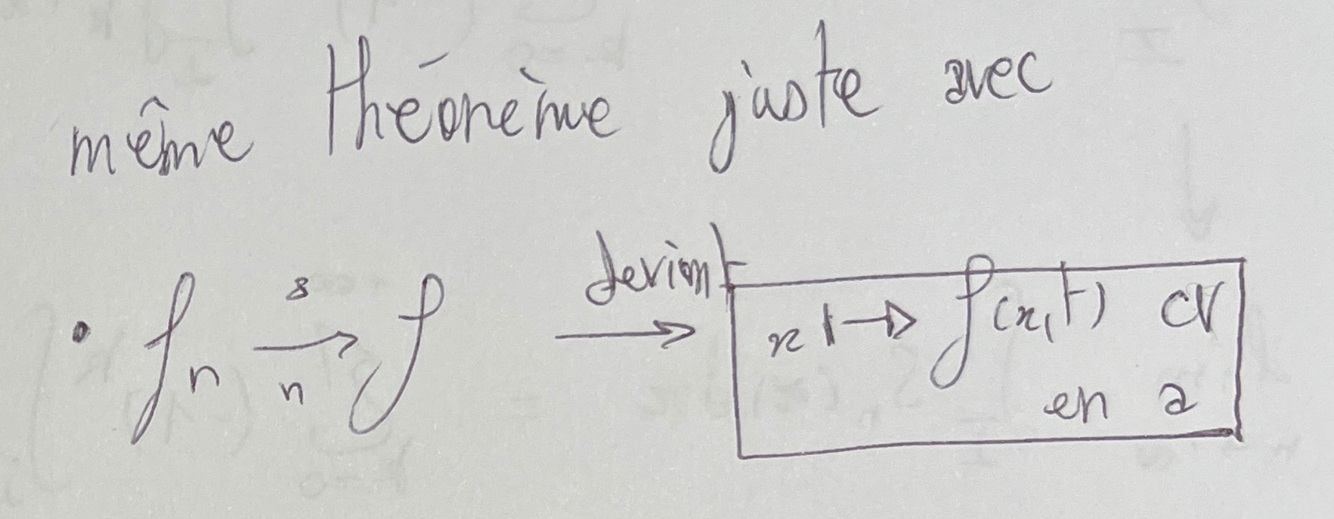 même théorème juste avec
• fₙ →ˢₙ f devient → x ↦ f(x,t) CV
en a